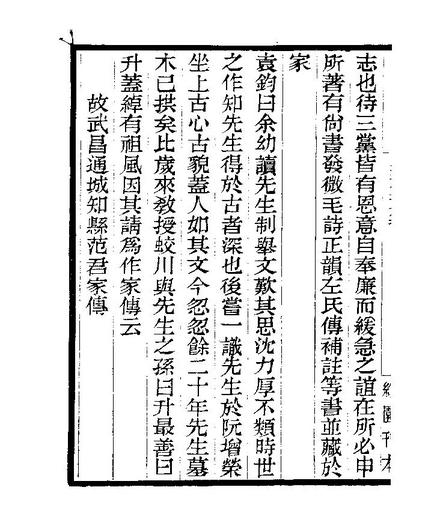 志也待三黨皆有恩意自奉廉而緩急之誼在所必申
所著有尙書發微毛詩正韻左氏傳補註等書並藏於
家
袁鈞曰余幼讀先生制舉文歎其思沈力厚不類時世
之作知先生得於古者深也後嘗一識先生於阮增榮
坐上古心古貌蓋人如其文今忽忽餘二十年先生墓
木已拱矣比歲來敎授蛟川與先生之孫曰升最善曰
升蓋綽有祖風因其請爲作家傳云
故武昌通城知縣范君家傳